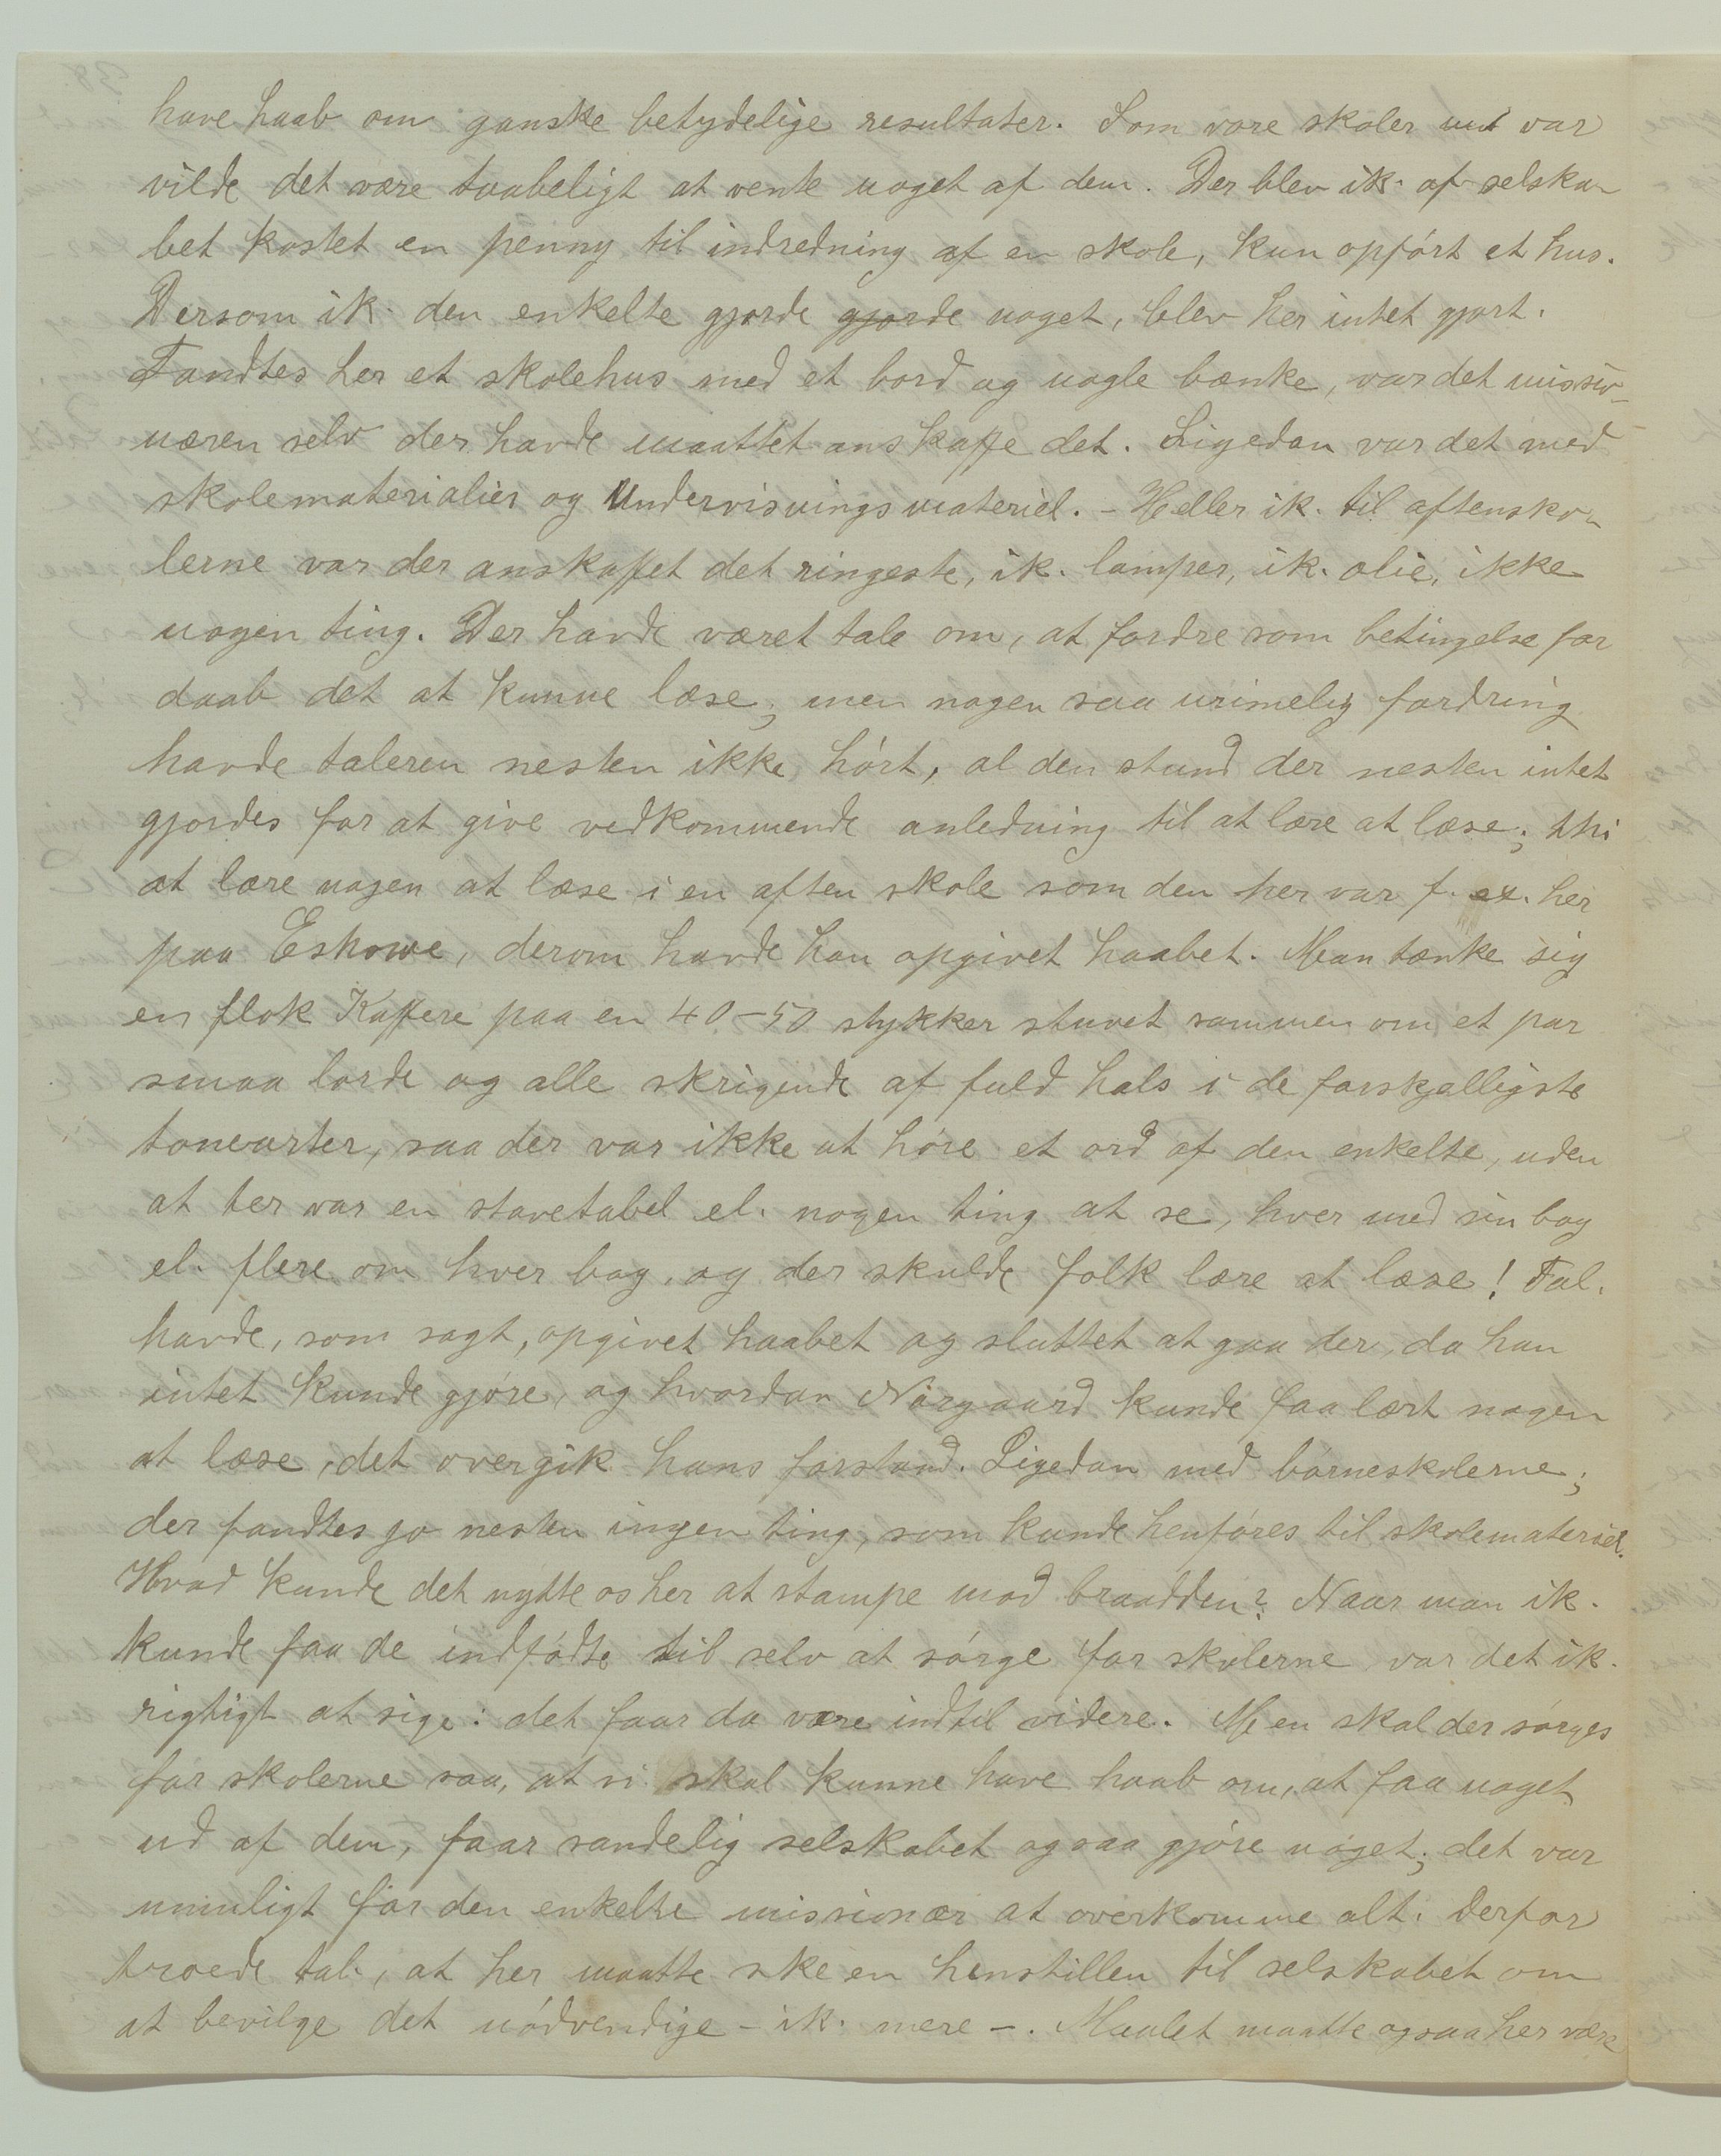 have haab om ganske betydelige resultater. Som vore skoler nu var
vilde det være taabeligt at vente noget af dem. Der blev ik. af selska-
bet kostet en penny til indredning af en skole, kun opført et hus.
Dersom ik. den enkelte gjorde gjorde noget, blev her intet gjort.
Fandtes her et skolehus med et bord og nogle bænke, var det missio-
næren selv der havde maattet anskaffe det. Ligedan var det med
skolematerialier og Undervisningsmateriel. - Heller ik. til aftensko-
lerne var der anskaffet det ringeste, ik. lamper, ik. olie, ikke
nogen ting. Der havde været tale om, at fordre som betingelse for
daab det at kunne læse; men nogen saa urimelig fordring
havde taleren nesten ikke hørt, al den stund der nesten intet
gjordes for at give vedkommende anledning til at lære at læse; thi
at lære nogen at læse i en aften skole som den her var f. ex. her
paa Eshowe, derom havde han opgivet haabet. Man tænke sig
en flok Kaffere paa en 40-50 stykker stuvet sammen om et par
smaa borde og alle skrigende af fuld hals i de forskjelligste
tonearter, saa der var ikke at høre et ord af den enkelte, uden
at her var en stavetabel el. nogen ting at se, hver med sin bog
el. flere om hver bog, og der skulde folk lære at læse! Tal.
havde, som sagt, opgivet haabet og sluttet at gaa der, da han
intet kunde gjøre, og hvordan Nørgaard kunde faa lært nogen
at læse, det overgik hans forstand. Ligedan med børneskolerne;
der fandtes jo nesten ingen ting, som kunde henføres til skolemateriel.
Hvad kunde det nytte os her at stampe mod braadden? Naar man ik.
kunde faa de indfødte til selv at sørge for skolerne var det ik.
rigtigt at sige: det faar da være indtil videre. Men skal der sørges
for skolerne saa, at vi skal kunne have haab om, at faa noget
ud af dem, faar sandelig selskabet ogsaa gjøre noget; det var
umuligt for den enkelte missionær at overkomme alt. Derfor
troede tal., at her maatte ske en henstillen til selskabet om
at bevilge det nødvendige - ik. mere -. Maalet maatte ogsaa her være